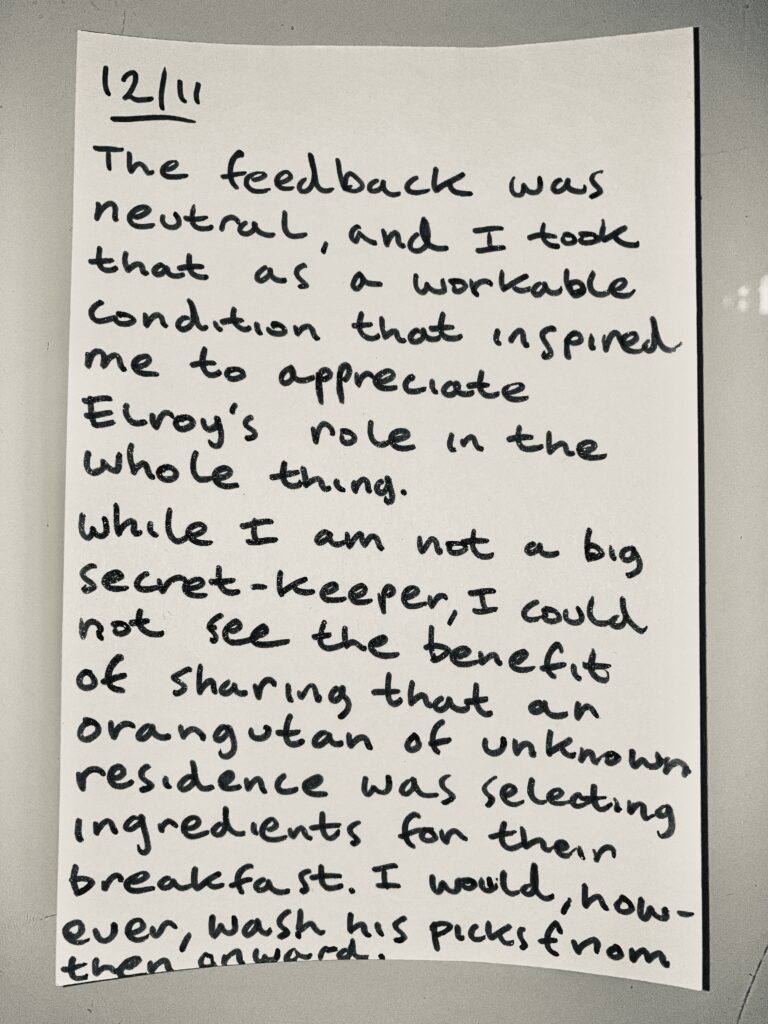 12/11
The feedback was
neutral, and I took
that as a workable
condition that inspired
me to appreciate
Elroy's role in the
whole thing.
While I am not a big
secret-keeper, I could
not see the benefit
of sharing that an
orangutan of unknown
residence was selecting
ingredients for their
breakfast. I would, how-
ever, wash his picks from
then onward.